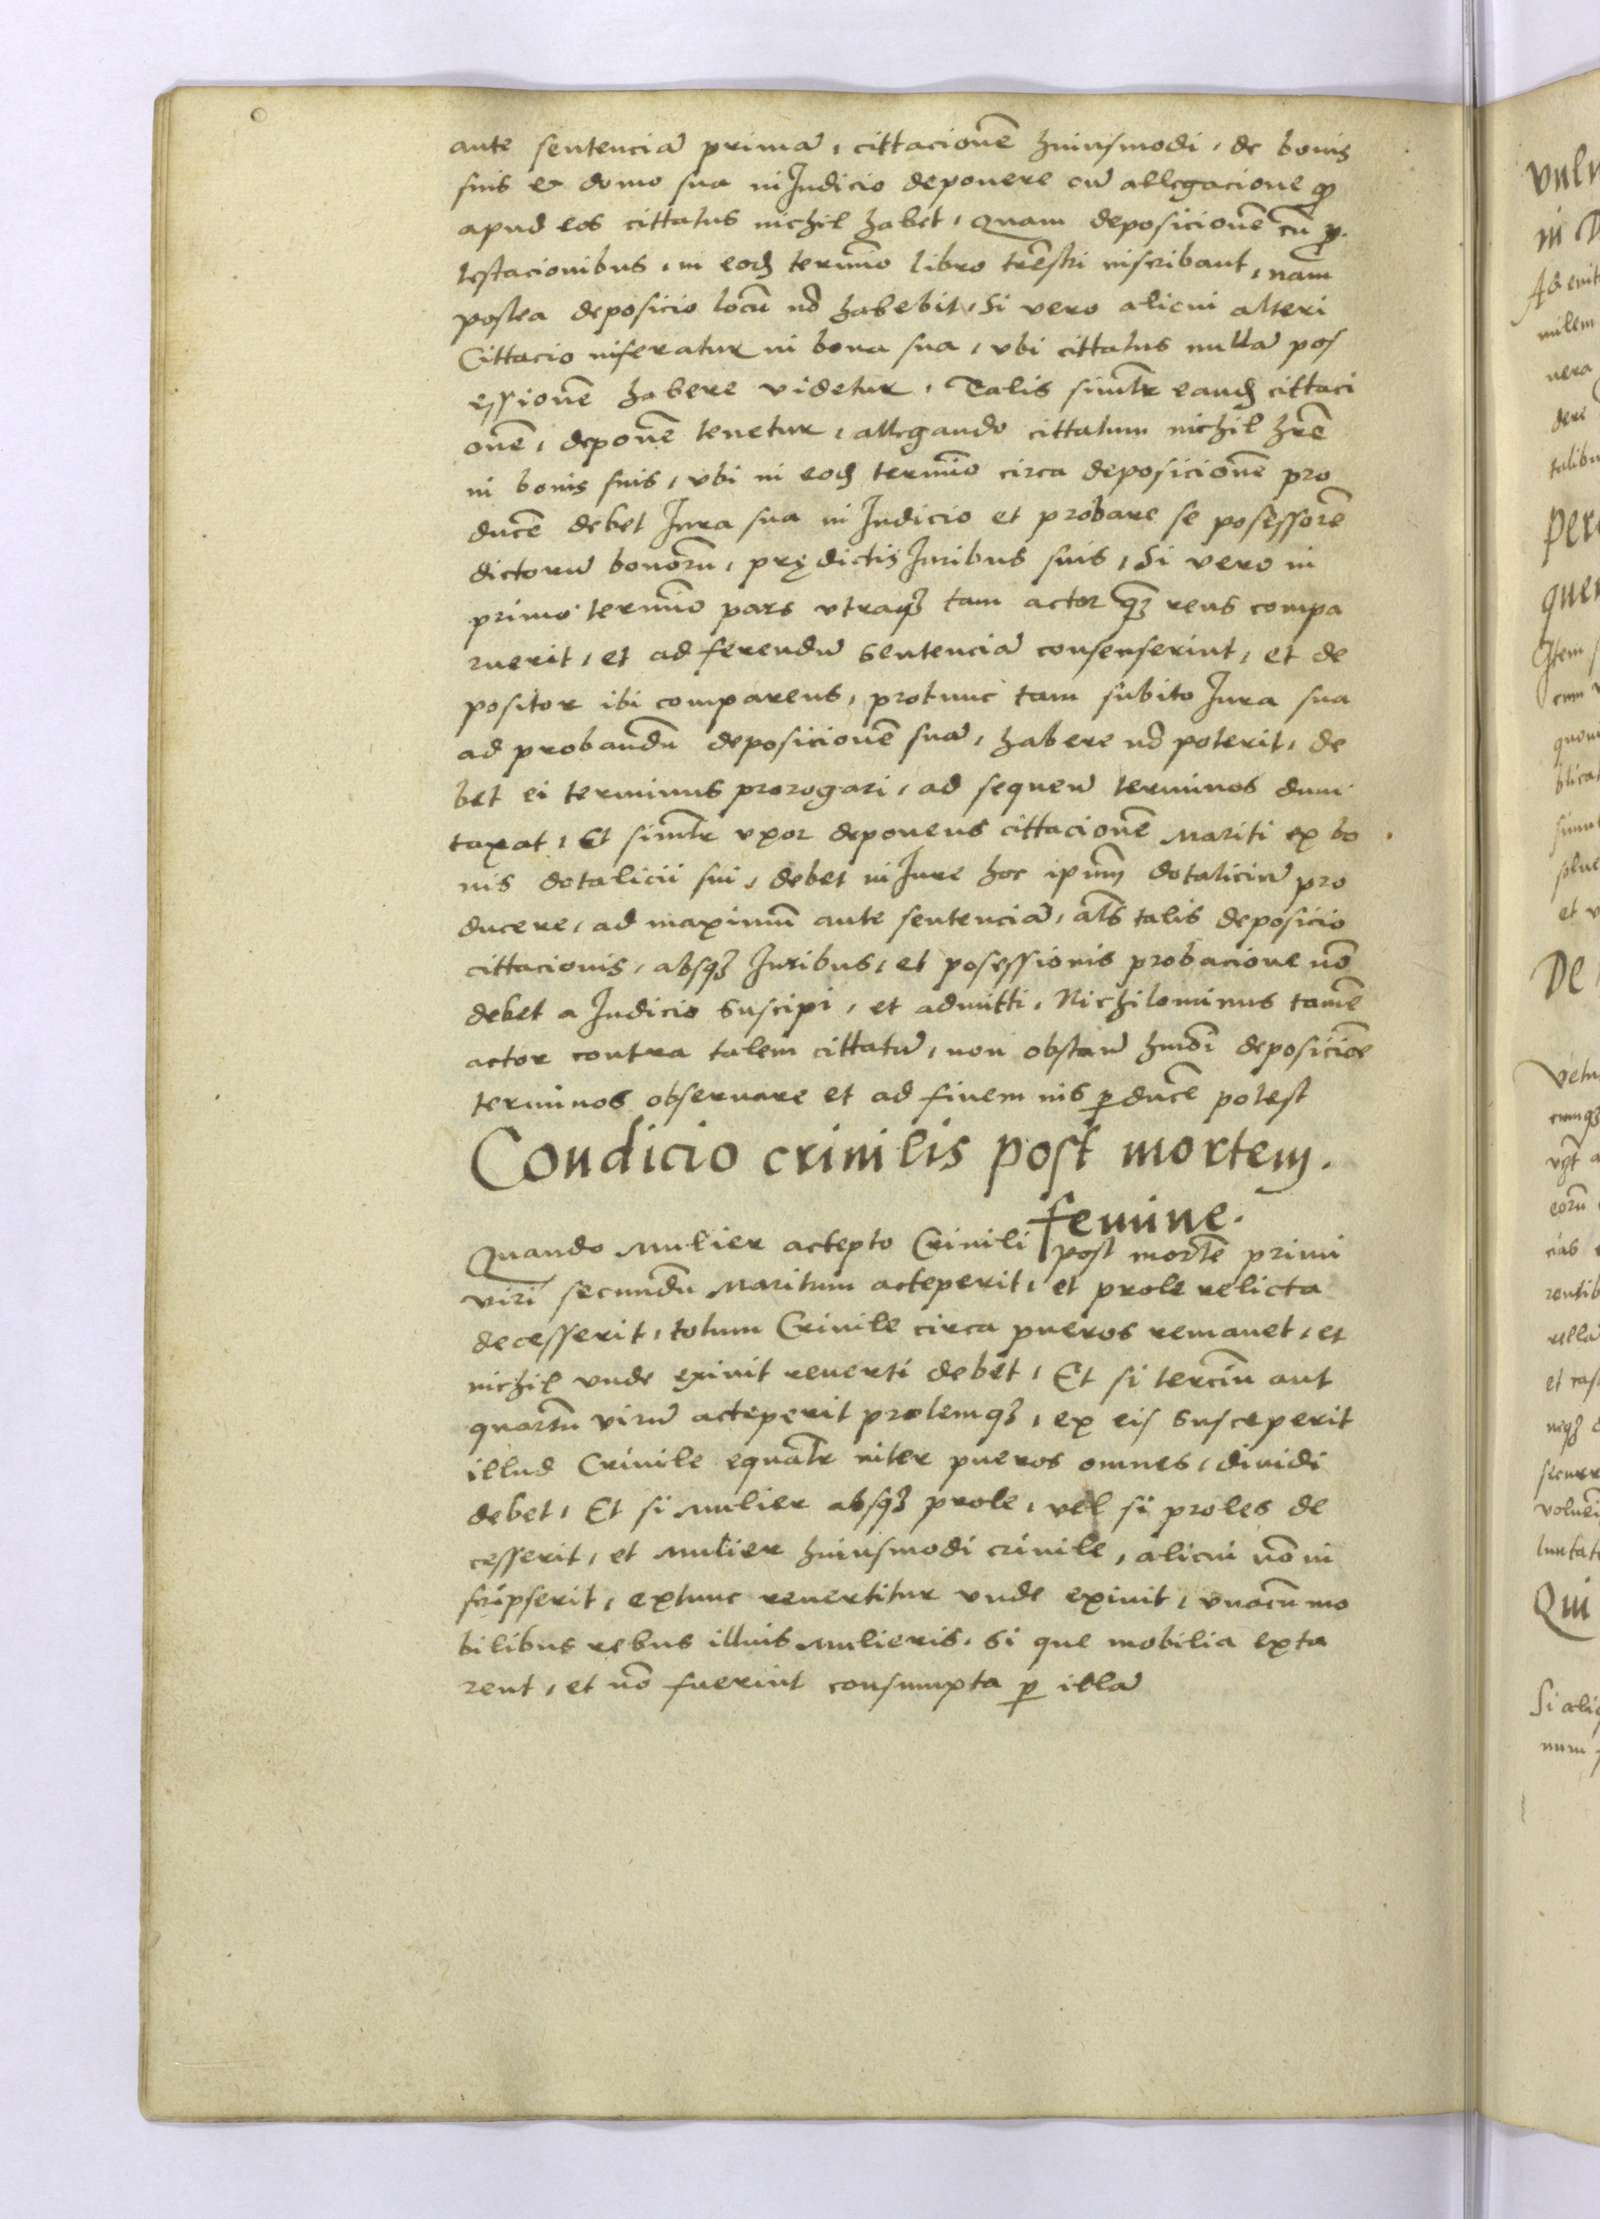 ante sentenciā primā, cittacionē huiusmodi, de bonis
suis et domo sua in Iudicio deponere cū allegacione ꝙ
apud eos cittatus nichil habet, Quam deposicionē cū ꝓ
testacionibus, in eodꝫ termīo libro trēstri inscribant, nam
postea deposicio locū nō habebit, Si vero alicui alteri
Cittacio inferatur in bona sua, vbi cittatus nullā pos
essionē habere videtur, Talis simlr̄ eandꝫ cittaci
onē, deponē tenetur, allegando cittatum nichil hrē
in bonis suis, vbi in eodꝫ termīo circa deposicionē pro
ducē debet Iura sua in Iudicio et probare se posessorē
dictorū bonorū, prędictis Iuribus suis, Si vero in
primo termīo pars vtraqꝫ tam actor qꝫ reus compa
ruerit, et ad ferendū sentenciā consenserint, et de
positor ibi comparens, protunc tam subito Iura sua
ad probandū deposicionē suā, habere nō poterit, de
bet ei terminus prorogari, ad sequen̄ terminos dum
taxat, Et simlr̄ vxor deponens cittacionē Mariti ex bo
nis dotalicii sui, debet in Iure hoc ipm̄ dotaliciū pro
ducere, ad maximū ante sentenciā, als̄ talis deposicio
cittacionis, absqꝫ Iuribus, et posessionis probacione nō
debet a Iudicio suscipi, et admitti, Nichilominus tamē
actor contra talem cittatū, non obstan̄ hmōi deposicīoe
terminos obseruare et ad finem ius ꝑducē potest
Condicio crinilis post mortem.
femine.
Quando Mulier accepto Crinili post mortē primi
viri secundū Maritum acceperit, et prole relicta
decesserit, totum Crinile circa pueros remanet, et
nichil vnde exiuit reuerti debet, Et si terciū aut
quartū virū acceperit prolemqꝫ, ex eis susceperit
illud Crinile equalr̄ inter pueros omnes, diuidi
debet, Et si Mulier absqꝫ prole, vel si proles de
cesserit, et Mulier huiusmodi crinile, alicui nō in
scripserit, extunc reuertitur vnde exiuit, vnacū mo
bilibus rebus illius Mulieris, si que mobilia exta
rent, et nō fuerint consumpta ꝑ illā